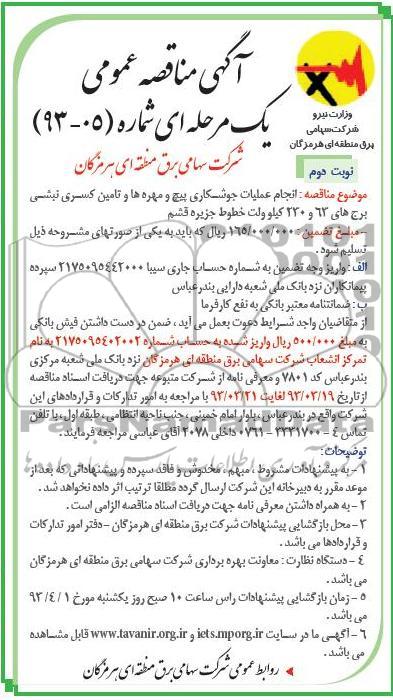 آگهی مناقصه عمومی
یک مرحله ای شماره (۰۵-۹۳)
شرکت سهامی برق منطقه ای هرمزگان
وزارت نیرو
شرکت سهامی
برق منطقه ای هرمزگان
نوبت دوم
موضوع مناقصه : انجام عملیات جوشکاری پیچ و مهره ها و تامین کسری نبشی
برج های ۶۳ و ۲۳۰ کیلو ولت خطوط جزیره قشم
- مبلغ تضمین : ۱۶۵/۰۰۰/۰۰۰ ریال که باید به یکی از صورتهای مشروحه ذیل
تسلیم شود .
الف : واریز وجه تضمین به شماره حساب جاری سیبا ۲۱۷۵۰۹۵۴۴۲۰۰۰ سپرده
پیمانکاران نزد بانک ملی شعبه دارایی بندرعباس
ب : ضمانتنامه معتبر بانکی به نفع کارفرما
از متقاضیان واجد شرایط دعوت بعمل می آید ، ضمن در دست داشتن فیش بانکی
به مبلغ ۵۰۰/۰۰۰ ریال واریز شده به حساب شماره ۲۱۷۵۰۹۵۴۰۲۰۰۲ به نام
تمرکز انشعاب شرکت سهامی برق منطقه ای هرمزگان نزد بانک ملی شعبه مرکزی
بندرعباس کد ۷۸۰۱ و معرفی نامه از شرکت متبوعه جهت دریافت اسناد مناقصه
از تاریخ ۹۳/۰۳/۱۹ لغایت ۹۳/۰۳/۲۱ با مراجعه به امور تدارکات و قراردادهای این
شرکت واقع در بندرعباس ، بلوار امام خمینی ، جنب ناحیه انتظامی ، طبقه اول ، یا تلفن
تماس ۴ - ۳۳۳۱۷۰۰ - ۰۷۶۱ داخلی ۲۰۷۸ آقای عباسی مراجعه فرمایند .
توضیحات :
۱ - به پیشنهادات مشروط ، مبهم ، مخدوش و فاقد سپرده و پیشنهاداتی که بعد از
موعد مقرر به دبیرخانه این شرکت ارسال گردد مطلقا ترتیب اثر داده نخواهد شد .
۲ - به همراه داشتن معرفی نامه جهت دریافت اسناد مناقصه الزامی است .
۳ - محل بازگشایی پیشنهادات شرکت برق منطقه ای هرمزگان - دفتر امور تدارکات
و قراردادها می باشد .
۴ - دستگاه نظارت : معاونت بهره برداری شرکت سهامی برق منطقه ای هرمزگان
می باشد .
۵ - زمان بازگشایی پیشنهادات راس ساعت ۱۰ صبح روز یکشنبه مورخ ۱ / ۴ / ۹۳
می باشد .
۶ - آگهی ما در سایت iets.mporg.ir و www.tavanir.org.ir قابل مشاهده
می باشد .
روابط عمومی شرکت سهامی برق منطقه ای هرمزگان